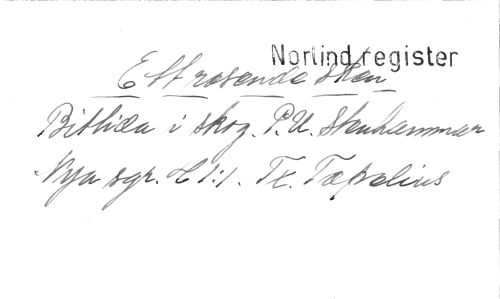 Norlind register
Ett rosende sken
Bithiæa i skog. P.U. Stenhammar
Nya sgr. H 1:1. Tx. Topelius